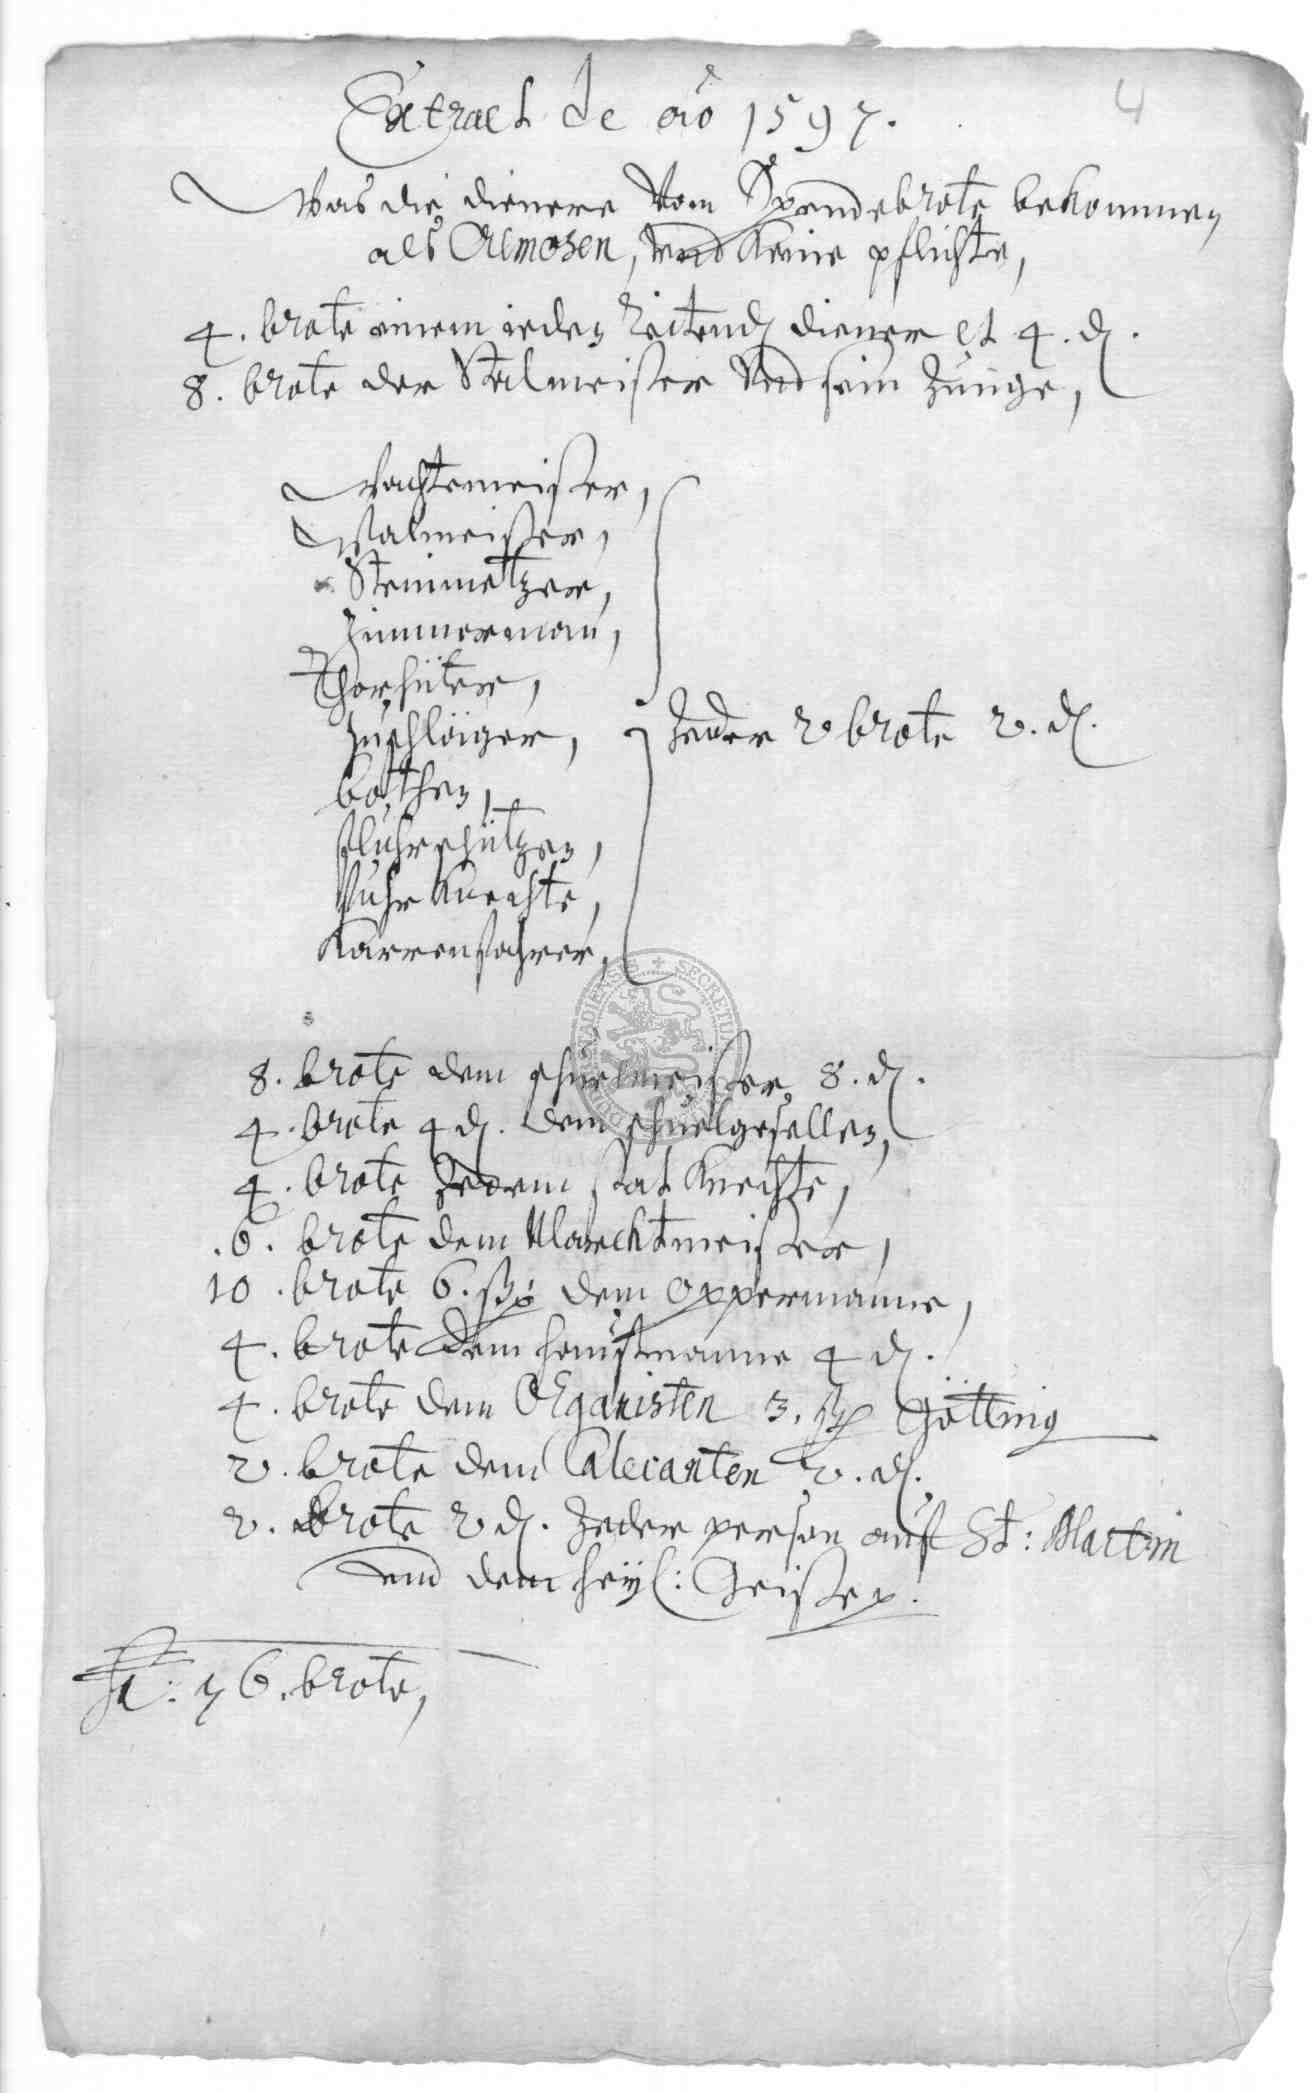 4
Extract de aõ 1597.
Was die dienere Vom Spendebrote bekommen
als Almosen, Vnd keine pflichte,
4. brote einem ieden reitend diener et 4. d.
8. brote der Stalmeister Vnd sein Junge,
Wachtemeister,
Walmeister,
Steinmetzer,
Zimmerman,
Thorhüter,
Zuschläger,
bothen,
fluhrschützen,
fuhr Knechte,
Karrenfahrer,
Jeder 2 brote 2. d.
8. brote dem schuelmeister 8. d.
4. brote 4 d. dem schuelgesellen,
4. brote Jedem stat Knechte,
.6. brote dem Marcktmeister,
10. brote 6. ß dem Oppermanne,
4. brote dem haußmanne 4 d.
4. brote dem Organisten 3. ß Götting
2. brote dem Calcanten 2. d.
2. brote 2 d. Jeder person auf St: Martin
vnd dem heyl: Geiste.
76. brote,
SECRETUM